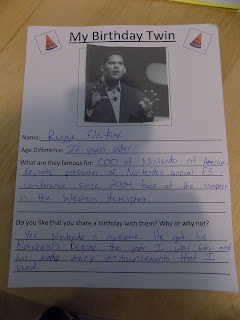 My Birthday Twin
Name: Reggie Fils-Aime
Age Difference: 22 years older
What are they famous for: COO of Nintendo of America,
keynote presenter of Nintendo annual E3
conference since 2004, face of the company
in the Western Hemisphere.
Do you like that you share a birthday with them? Why or why not?
Yes. Nintendo is awesome. He got his
Bachelors Degree the year I was born and
has made many announcements that I
loved.